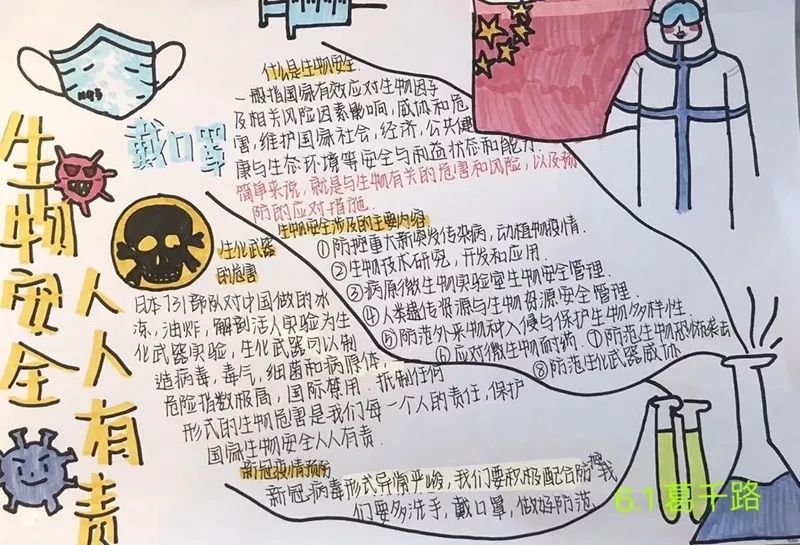 生物安全
人人有责
戴口罩
什么是生物安全
一般指国家有效应对生物因子
及相关风险因素影响,威胁和危
害,维护国家社会,经济,公共健
康与生态环境等安全与利益状态和能力.
简单来说,就是与生物有关的危害和风险,以及预
防的应对措施.
生物安全涉及的主要内容
①防控重大新突发传染病,动植物疫情.
②生物技术研究,开发和应用.
③病原微生物实验室生物安全管理.
④人类遗传资源与生物资源安全管理.
⑤防范外来物种入侵与保护生物多样性.
⑥应对微生物耐药.⑦防范生物恐怖袭击
⑧防范生化武器威胁
生化武器
的危害
日本731部队对中国做的冰
冻,油炸,解剖活人实验为生
化武器实验,生化武器可以制
造病毒,毒气,细菌和病原体,
危险指数极高,国际禁用.抵制任何
形式的生物危害是我们每一个人的责任,保护
国家生物安全人人有责.
新冠疫情预防
新冠病毒形式异常严峻,我们要积极配合防控我
们要多洗手,戴口罩,做好防范.
6.1葛千路